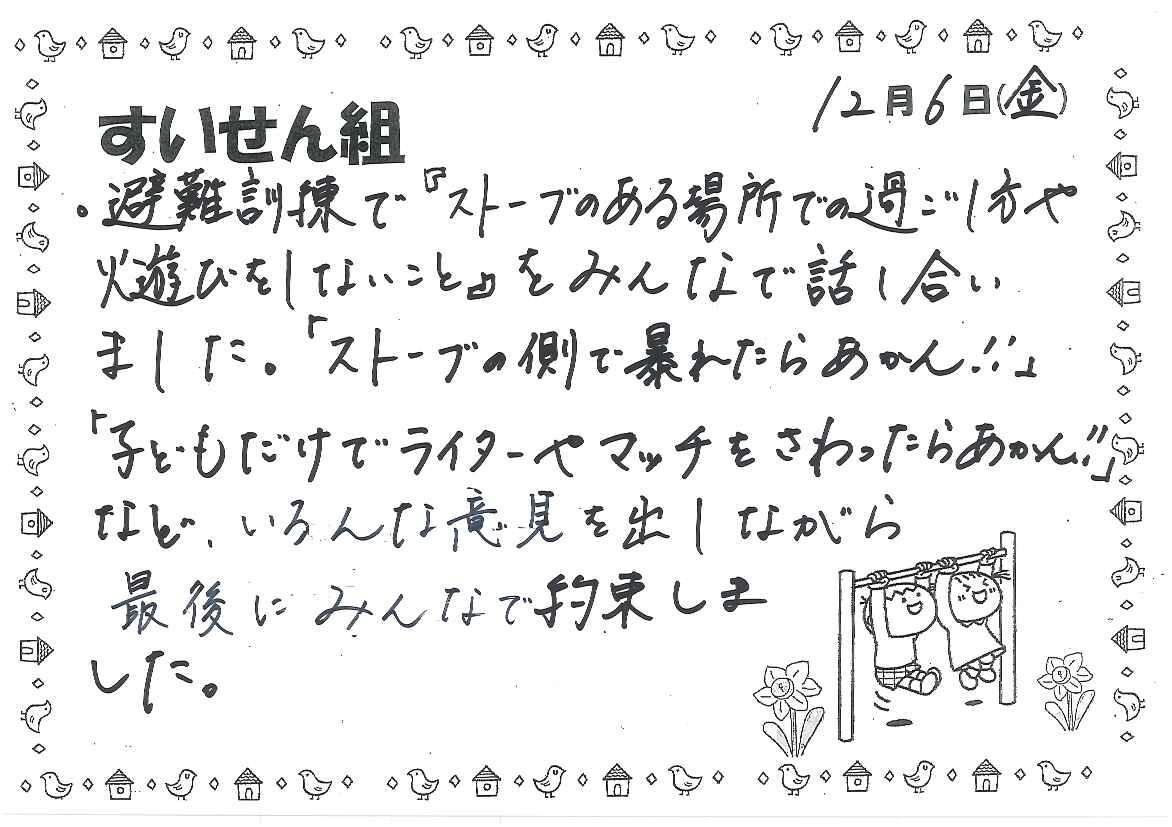 12月6日(金)
すいせん組
・避難訓練で『ストーブのある場所での過ごし方や
火遊びをしないこと』をみんなで話し合い
ました。「ストーブの側で暴れたらあかん!!」
「子どもだけでライターやマッチをさわったらあかん!!」
など、いろんな意見を出しながら
最後にみんなで約束しま
した。